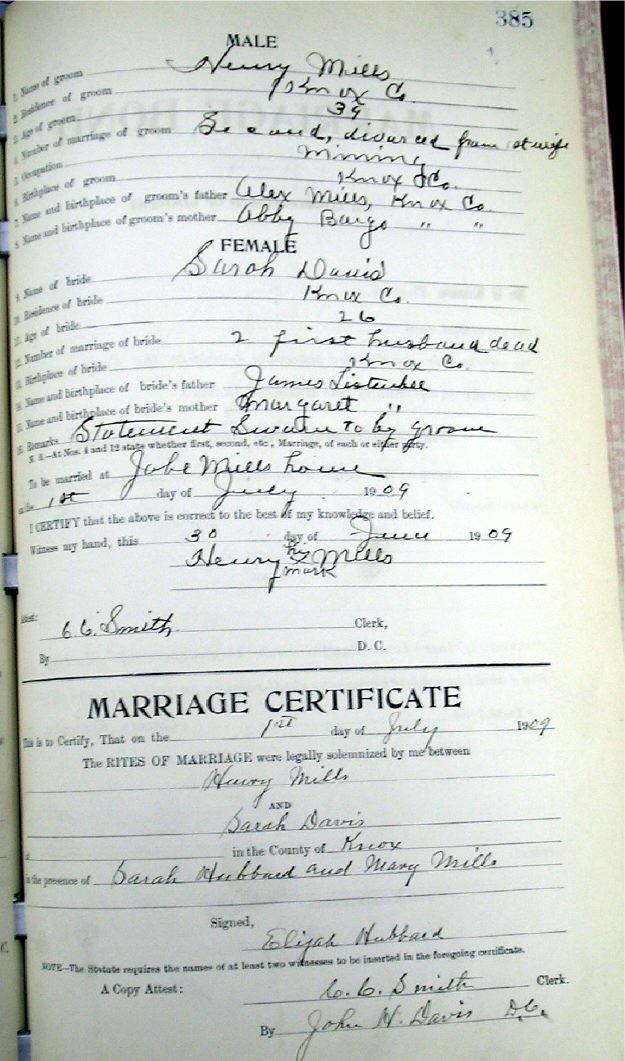 385
MALE
1. Name of groom Henry Mills
2. Residence of groom Knox Co.
3. Age of groom 39
4. Number of marriage of groom Second, divorced from 1st wife
5. Occupation Mining
6. Birthplace of groom Knox Co.
7. Name and birthplace of groom's father Alex Mills, Knox Co.
8. Name and birthplace of groom's mother Abby Bargo " "
FEMALE
9. Name of bride Sarah David
10. Residence of bride Knox Co.
11. Age of bride 26
12. Number of marriage of bride 2 first husband dead
13. Birthplace of bride Knox Co.
14. Name and birthplace of bride's father James
15. Name and birthplace of bride's mother Margaret "
16. Remarks Statement Swarn to by groom
N. B.—At Nos. 4 and 12 state whether first, second, etc., Marriage, of each or either party.
To be married at Jobe Mills home
on the 1st day of July 1909
I CERTIFY that the above is correct to the best of my knowledge and belief.
Witness my hand, this 30 day of June 1909
Henry his x mark Mills
Attest:
C. C. Smith Clerk,
By D. C.
MARRIAGE CERTIFICATE
This is to Certify, That on the 1st day of July 1909
The RITES OF MARRIAGE were legally solemnized by me between
Henry Mills
AND
Sarah Davis
at in the County of Knox
in the presence of Sarah Hubbard and Mary Mills
Signed,
Elijah Hubbard
NOTE—The Statute requires the names of at least two witnesses to be inserted in the foregoing certificate.
A Copy Attest: C. C. Smith Clerk.
By John H. Davis D.C.